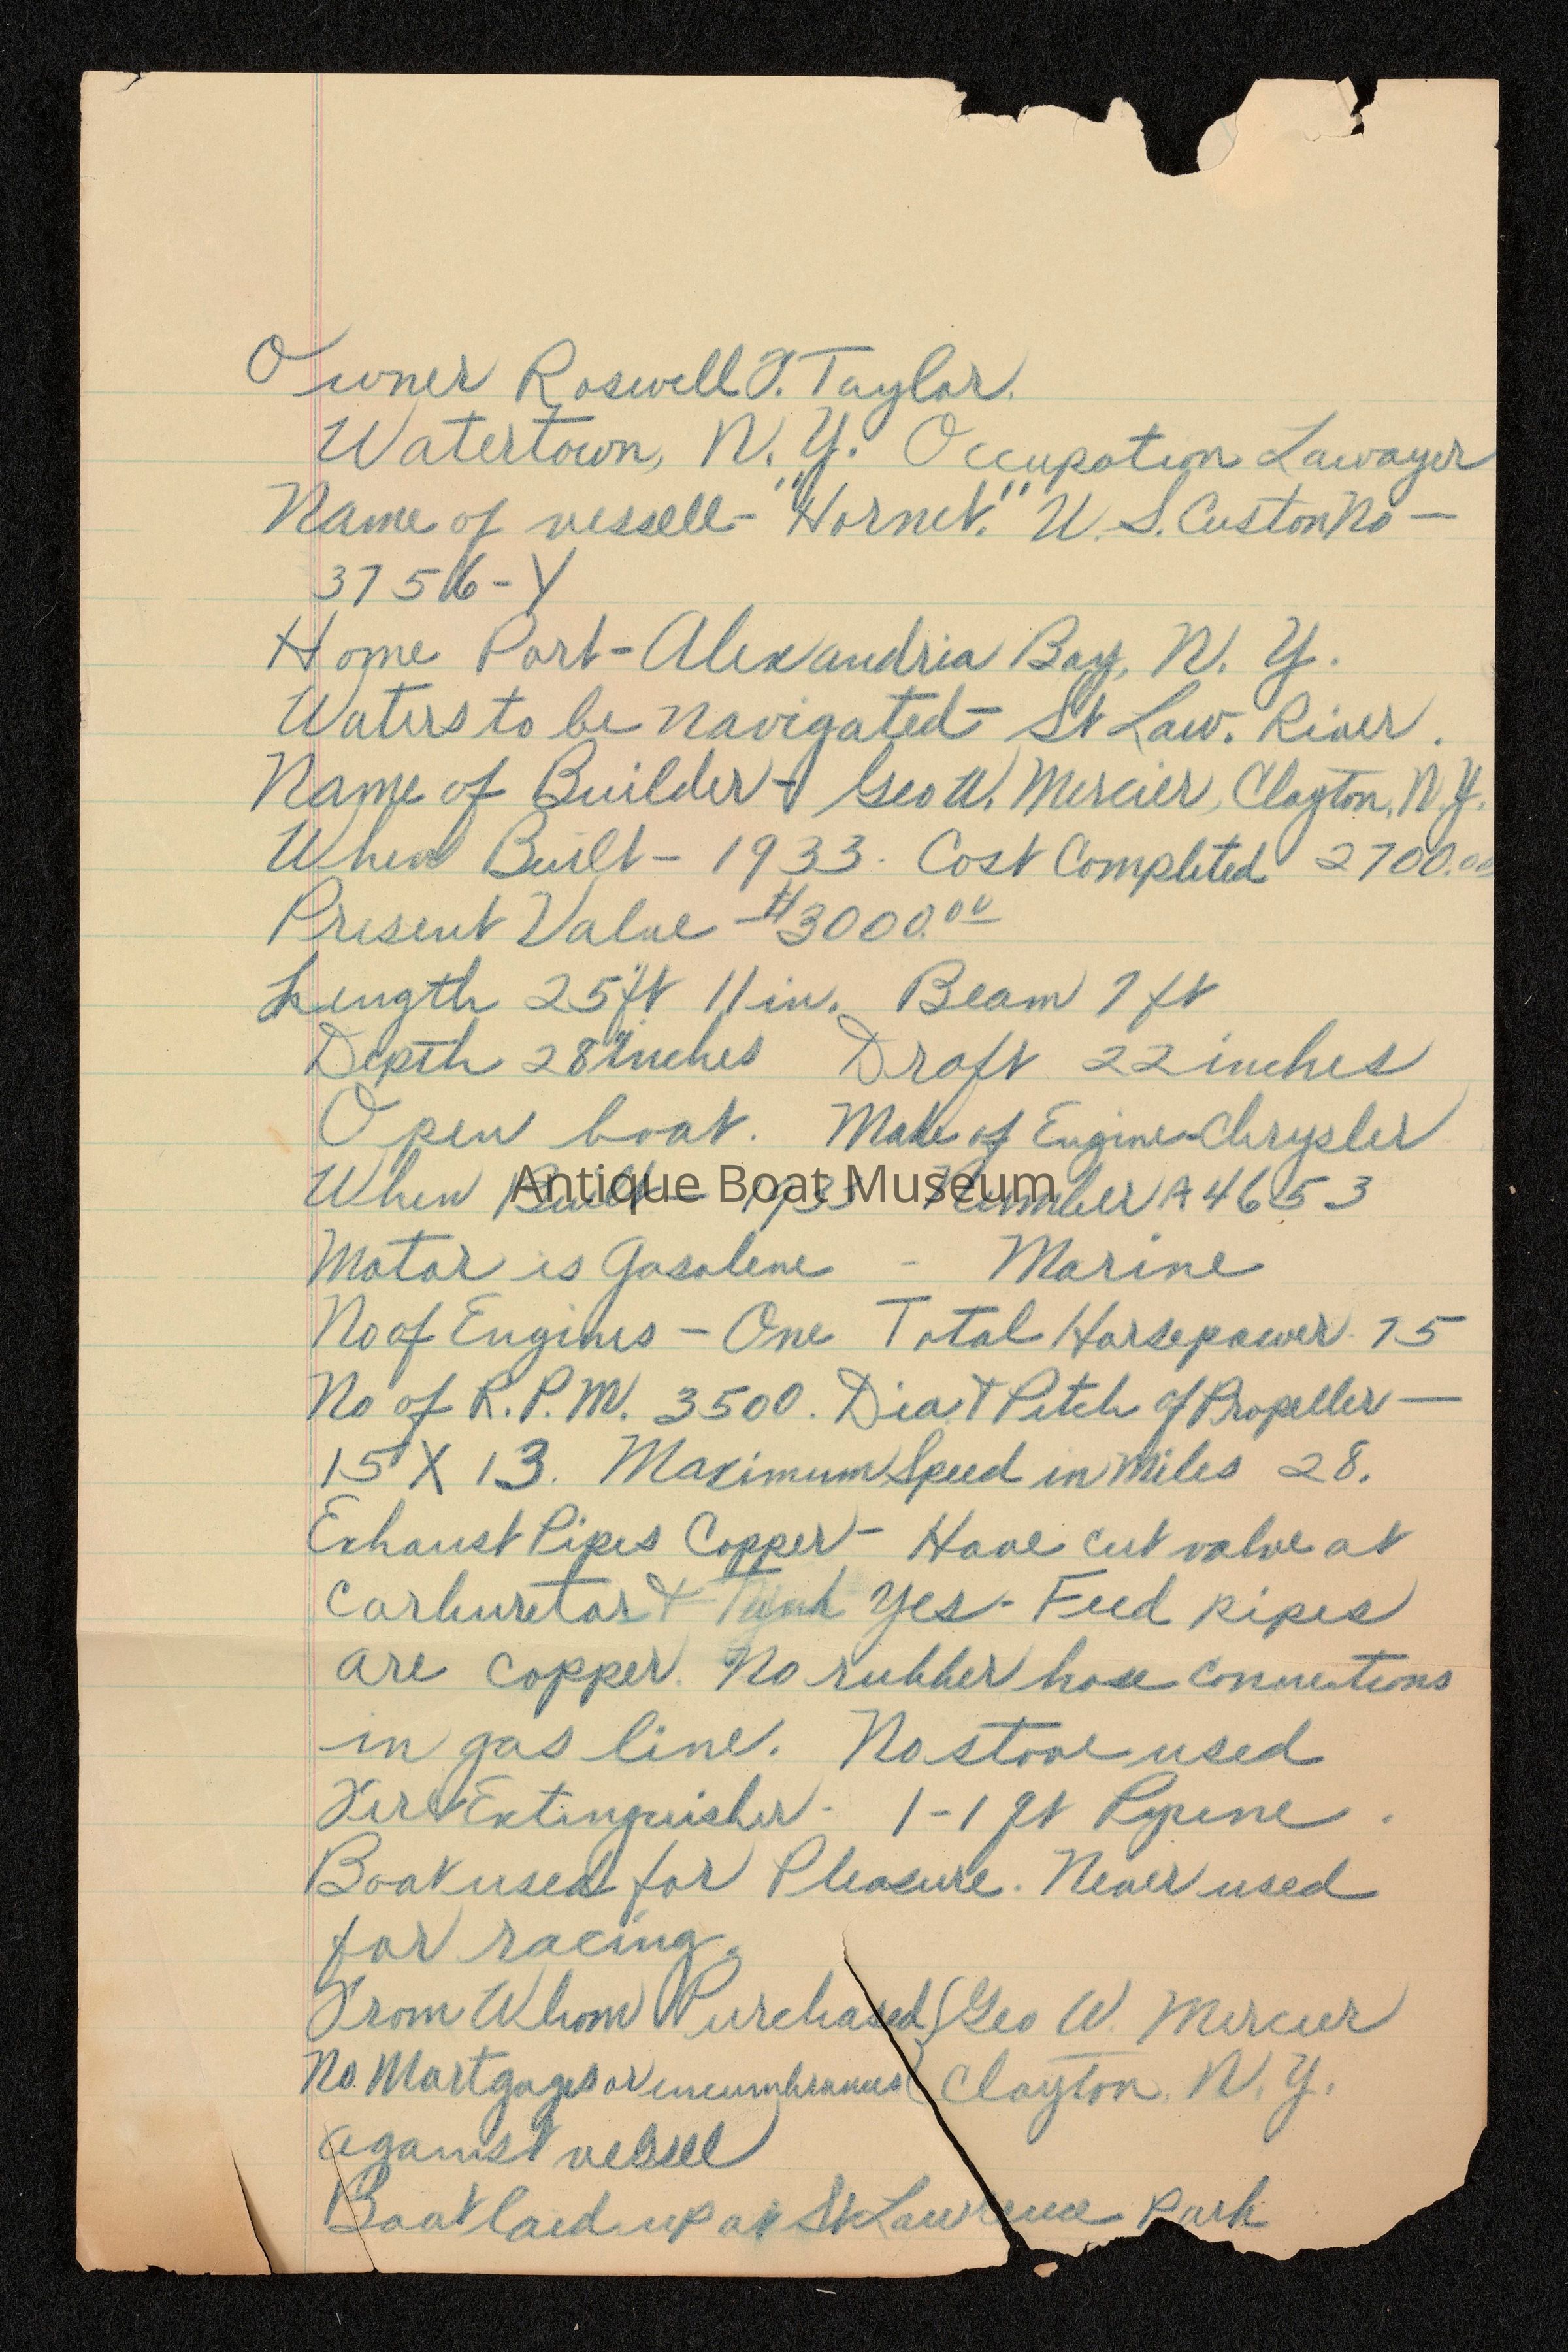 Owner Roswell F. Taylor.
Watertown, N. Y. Occupation Lawayer
Name of vessell - "Hornet." U. S. Custom No —
3756 - Y
Home Port - Alexandria Bay, N. Y.
Waters to be navigated - St Law. River.
Name of Builder - Geo W. Mercier, Clayton, N.Y.
When Built - 1933. Cost Completed 2700.00
Present Value - $3000.00
Length 25 ft 11 in. Beam 7 ft
Depth 28" inches Draft 22 inches
Open boat. Make of Engine - Chrysler
When Built - Number A4653
Antique Boat Museum
Motor is Gasolene - Marine
No of Engines - One Total Horsepower 75
No of R. P. M. 3500. Dia & Pitch of Propeller —
15 X 13. Maximum Speed in Miles 28.
Exhaust Pipes Copper - Have cut valve at
Carburetor & Tank Yes - Feed pipes
are copper. No rubber hose connections
in gas line. No stove used
Fire Extinguisher - 1 - 1 qt Pyrene.
Boat used for Pleasure. Never used
for racing.
From Whom Purchased (Geo W. Mercier
No Mortgages or encumbrances ( Clayton, N. Y.
against vessel
Boat laid up at St Lawrence Park